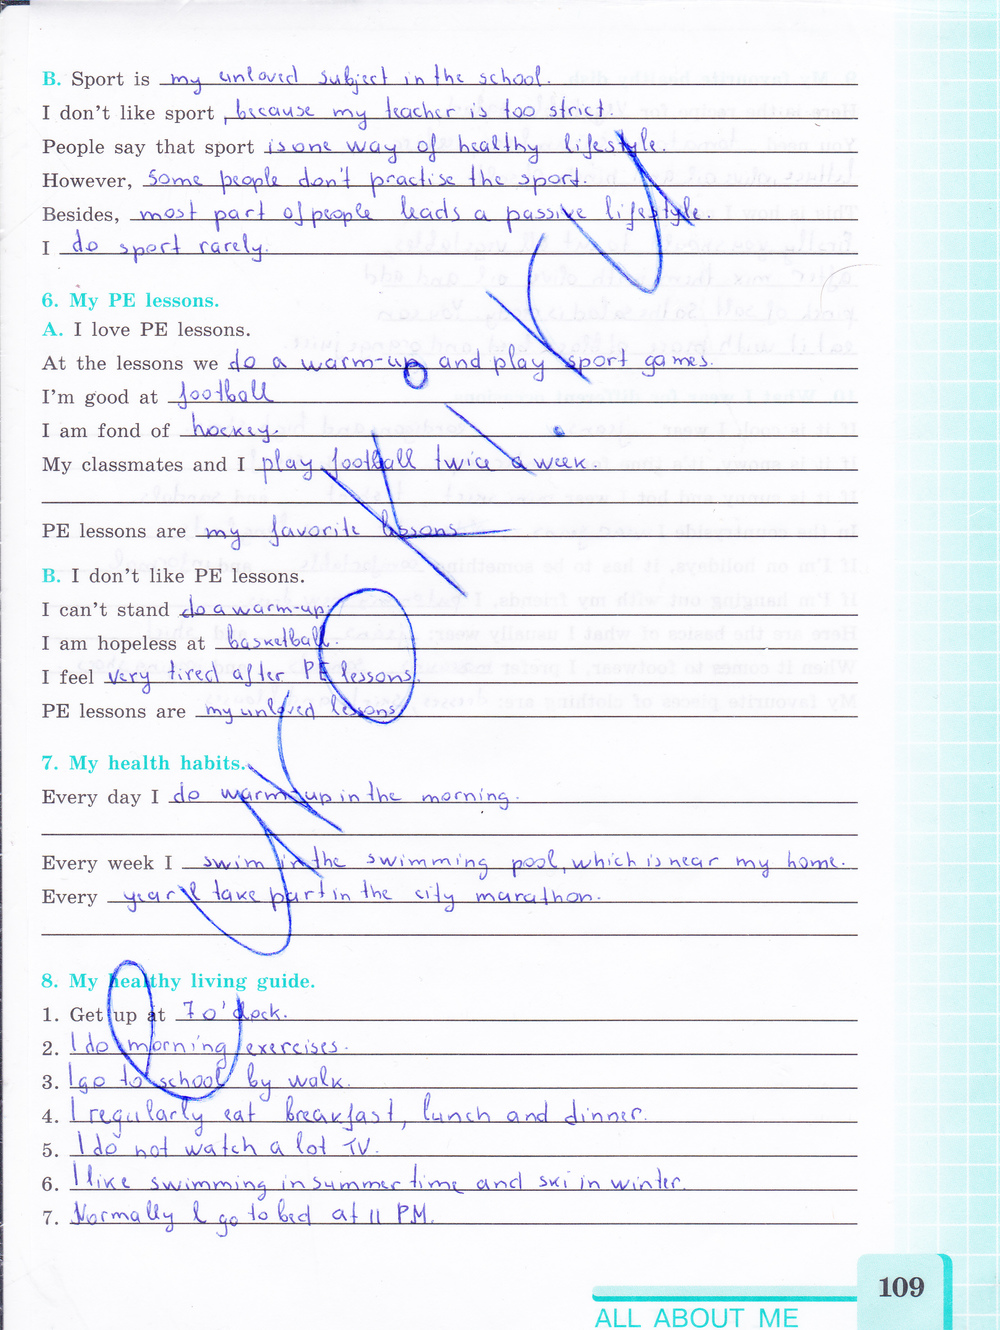 B. Sport is my unloved subject in the school.
I don't like sport, because my teacher is too strict.
People say that sport is one way of healthy lifestyle.
However, some people don't practise the sport.
Besides, most part of people leads a passive lifestyle.
I do sport rarely.
6. My PE lessons.
A. I love PE lessons.
At the lessons we do a warm-up and play sport games.
I'm good at football
I am fond of hockey.
My classmates and I play football twice a week.
PE lessons are my favorite lessons
B. I don't like PE lessons.
I can't stand do a warm-up.
I am hopeless at basketball.
I feel very tired after PE lessons.
PE lessons are my unloved lessons
7. My health habits.
Every day I do warm-up in the morning.
Every week I swim in the swimming pool, which is near my home.
Every year I take part in the city marathon.
8. My healthy living guide.
1. Get up at 7 o'clock.
2. I do morning exercises.
3. I go to school by walk.
4. I regularly eat breakfast, lunch and dinner.
5. I do not watch a lot TV.
6. I like swimming in summer time and ski in winter.
7. Normally I go to bed at 11 PM.
109
ALL ABOUT ME